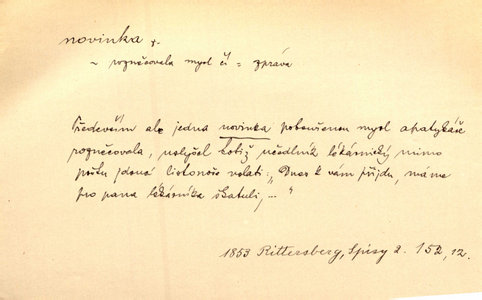 novinka f.
~ rozněcovala mysl čí = zpráva
Především ale jedna novinka pobouřenou mysl apatykáře
rozněcovala, uslyšel totiž učedlník lékárnický mimo
poštu jdoucí listonoše volati: „Dnes k vám přijdu, máme
pro pana lékárníka škatuli, ... “
1853 Rittersberg, Spisy 2. 152, 12.